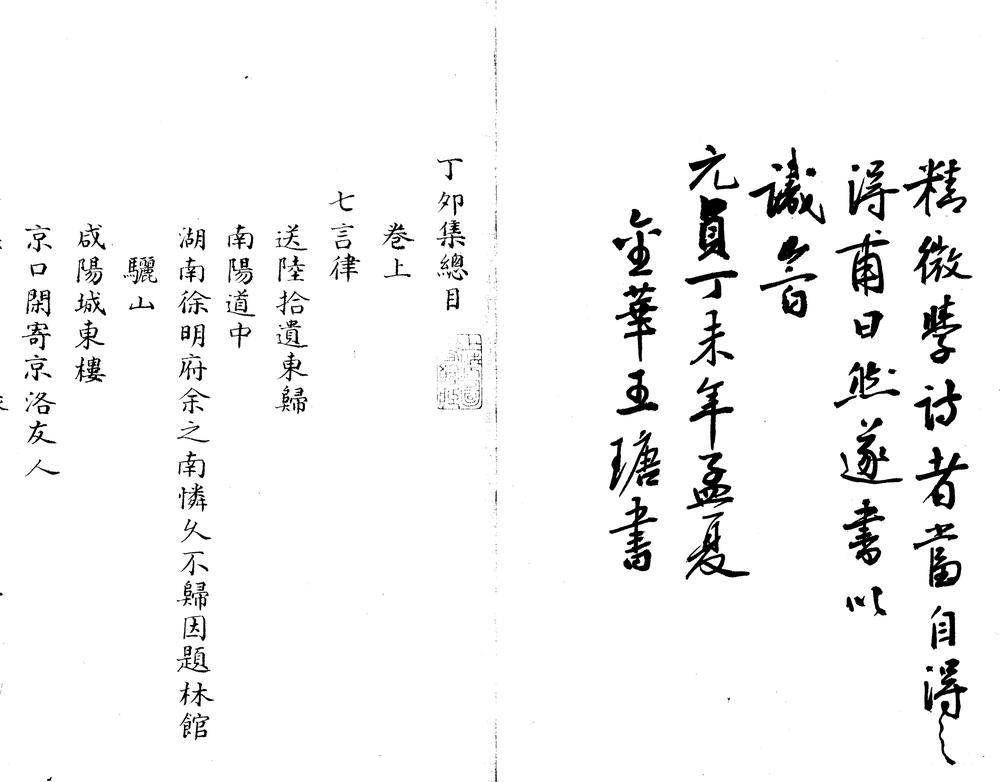 精微學詩者當自得之
得甫曰然遂書以
識音
元貞丁未年孟夏
金華王瑭書
丁卯集總目
卷上
七言律
送陸拾遺東歸
南陽道中
湖南徐明府余之南憐久不歸因題林館
驪山
咸陽城東樓
京口閑寄京洛友人